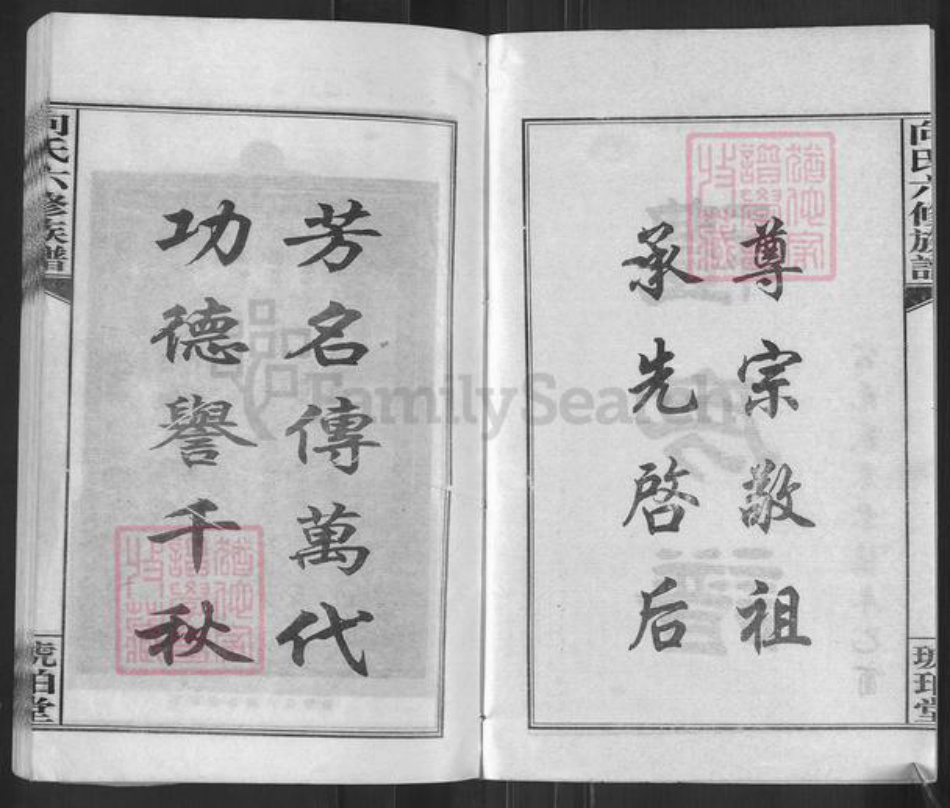 向氏六修族譜
尊宗敬祖
承先啓后
芳名傳萬代
功德譽千秋
向氏六修族譜
FamilySearch